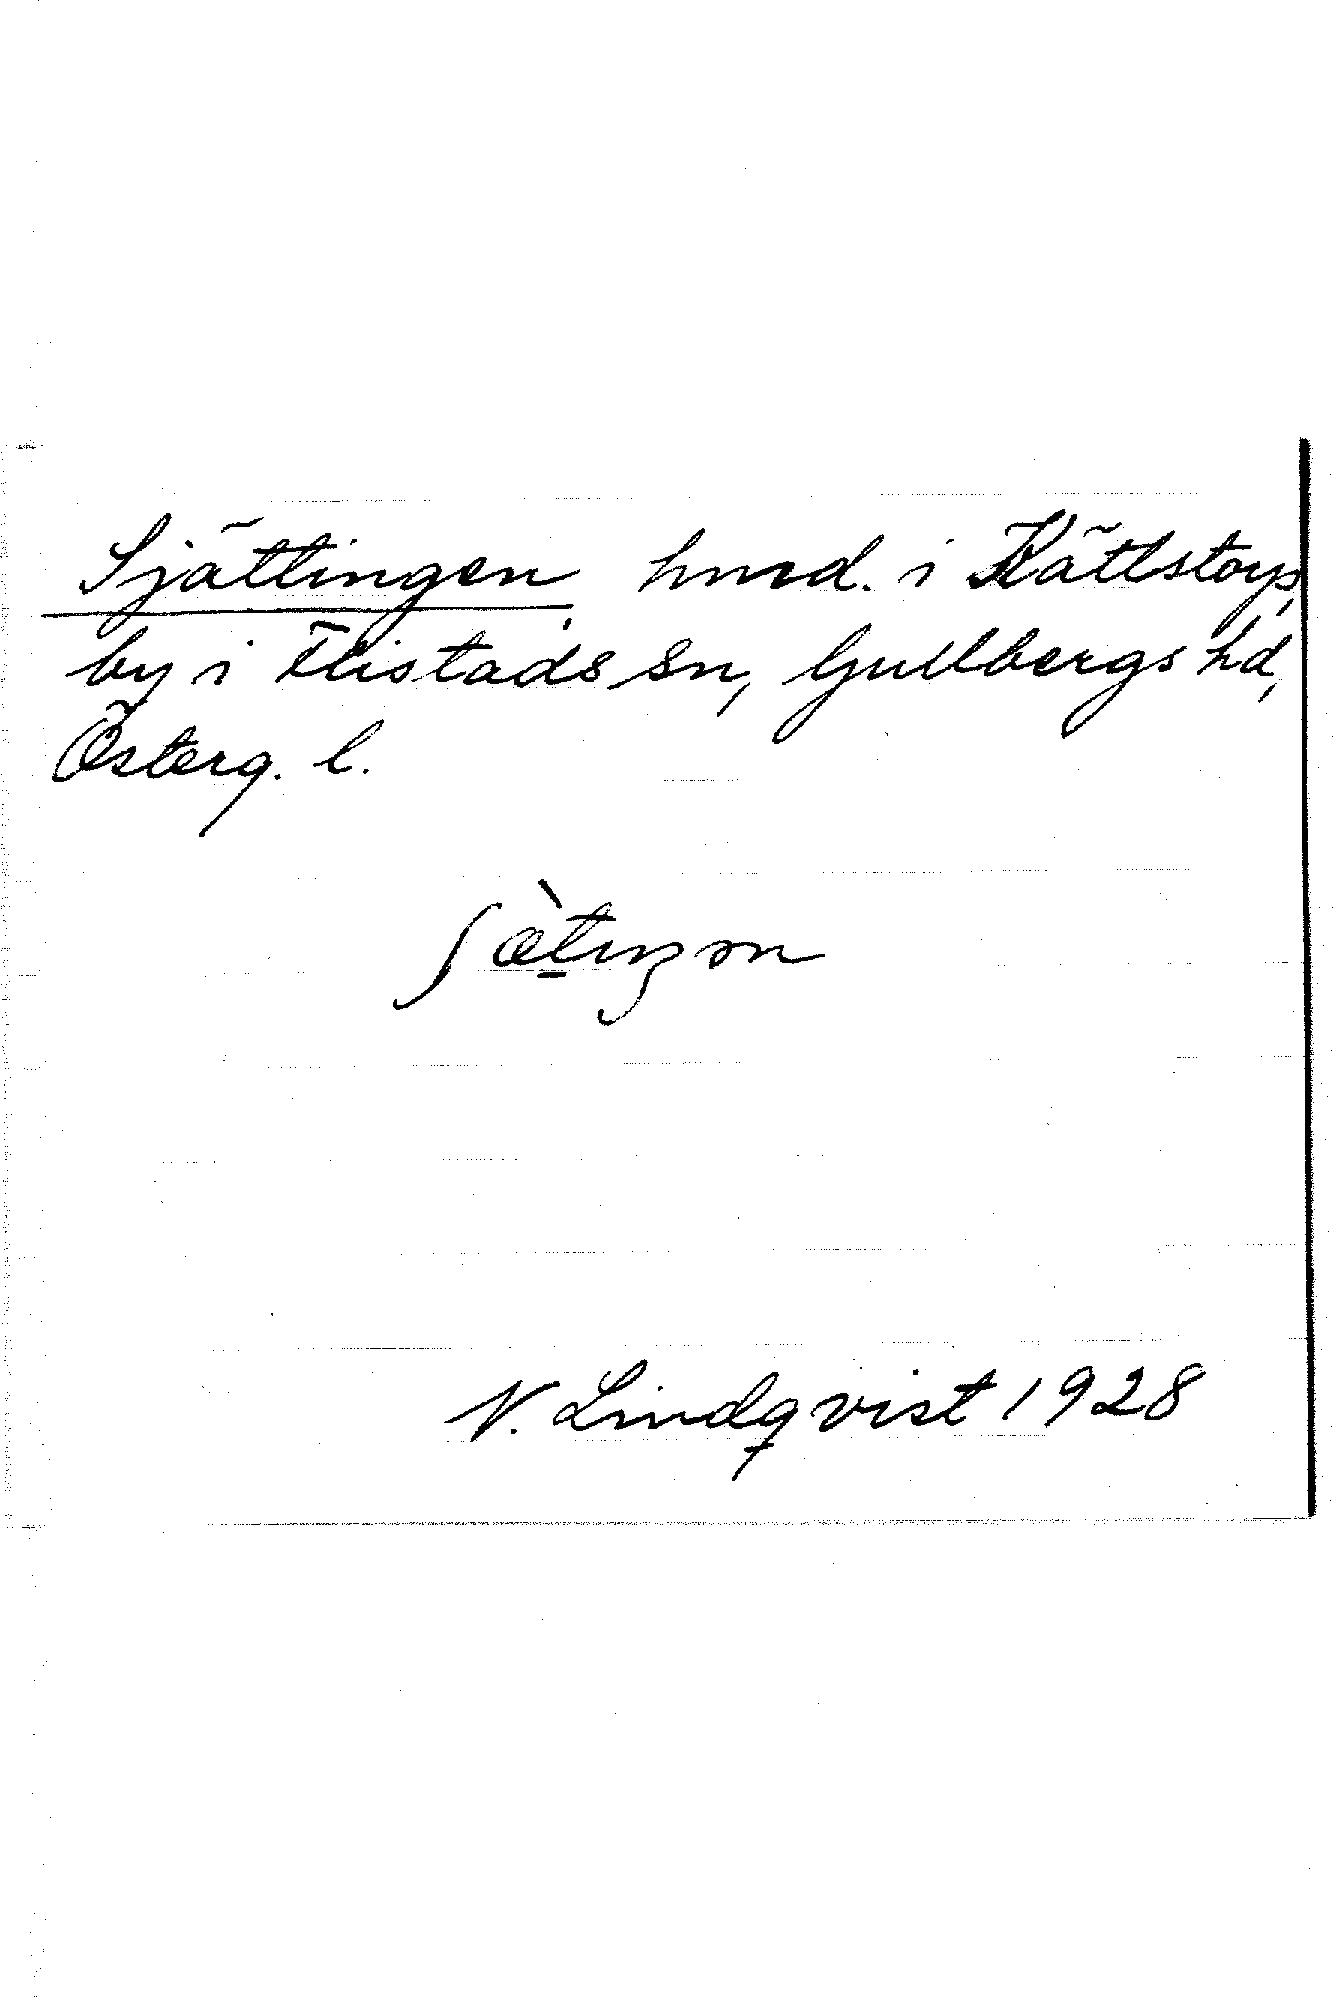 Sjättingen, hmd. i Kättstorp,
by i Flistads sn, Gullbergs hd,
Österg. l.
ʃæ̀tıŋən
N. Lindqvist 1928